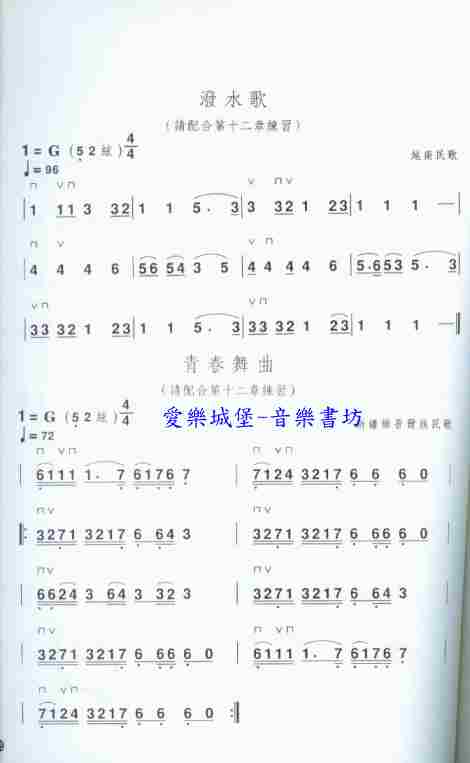 潑水歌
（請配合第十二章練習）
1 = G （5 2 絃） 4/4
♩= 96
越南民歌
| 1 11 3 32 | 1 1 5· 3 | 33 32 1 23 | 1 1 1 — |
| 4 4 4 6 | 56 54 3 5 | 4 44 4 6 | 5·653 5· 3 |
| 33 32 1 23 | 1 1 5· 3 | 33 32 1 23 | 1 1 1 — ‖
青春舞曲
（請配合第十二章練習）
1 = G （5 2 絃） 4/4
♩= 72
愛樂城堡-音樂書坊
新疆維吾爾族民歌
| 6111 1· 7 6176 7 | 7124 3217 6 6 0 |
‖: 3271 3217 6 64 3 | 3271 3217 6 6 0 |
| 6624 3 64 3 | 3271 3217 6 64 3 |
| 3271 3217 6 6 0 | 6111 1· 7 6176 7 |
| 7124 3217 6 6 0 :‖